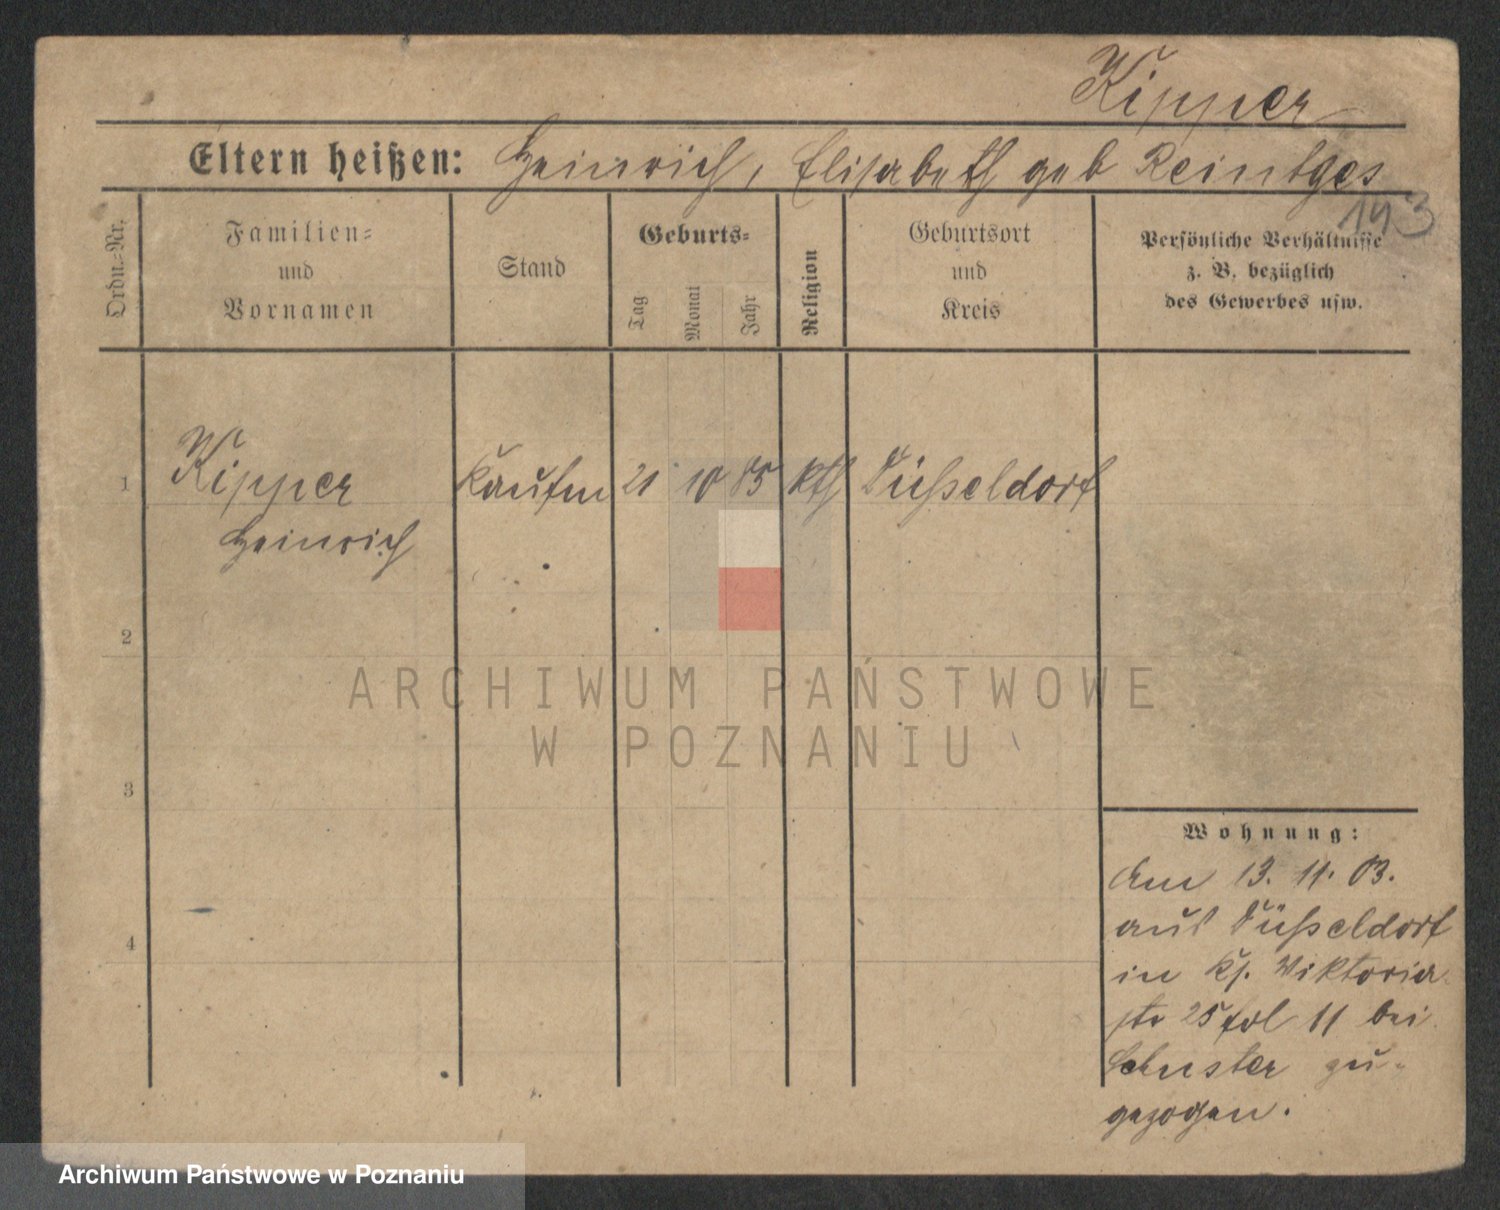 Kipper
Eltern heißen: Heinrich, Elisabeth geb Reintges
143
Ordn.-Nr.
Familien-
und
Vornamen
Stand
Geburts-
Tag
Monat
Jahr
Religion
Geburtsort
und
Kreis
Persönliche Verhältnisse
z. B. bezüglich
des Gewerbes usw.
1
Kipper Kaufm 21 10 85 kth Düsseldorf
Heinrich
2
ARCHIWUM PAŃSTWOWE
W POZNANIU
3
4
Wohnung:
Am 13. 11. 03.
aus Düsseldorf
in Viktoria
str 25 fol 11 bei
Schuster zu-
gezogen.
Archiwum Państwowe w Poznaniu